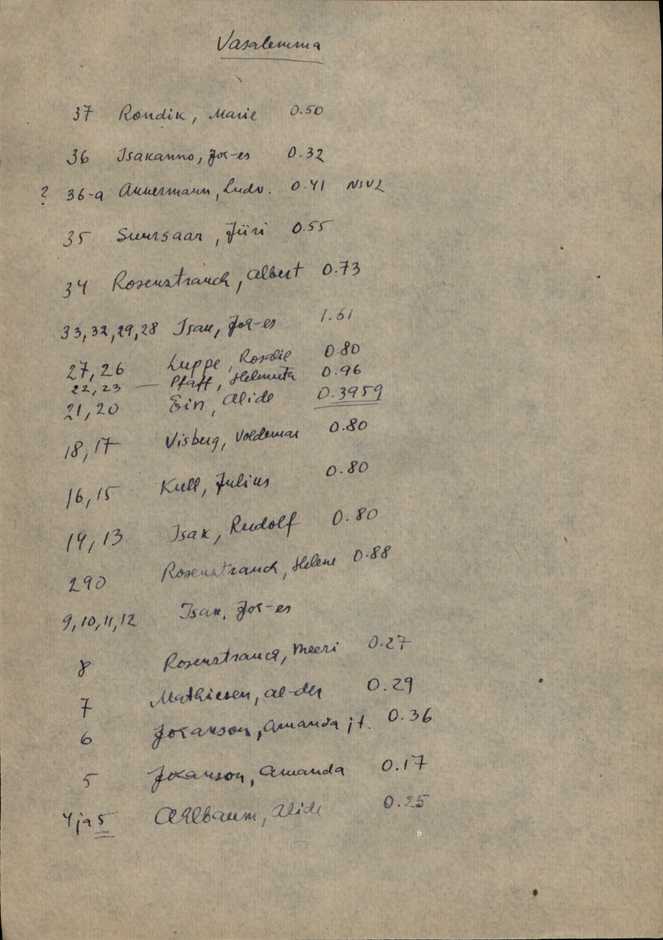 Vasalemma
37 Rondik, Marie 0.50
36 Isakanno, Joh-es 0.32
? 36-a Annermann, Ludv. 0.41 NSVL
35 Suursaar, Jüri 0.55
34 Rosenstrauch, Albert 0.73
33, 32, 29, 28 Isak, Joh-es 1.61
27, 26 Luppe, Rosalie 0.80
22, 23 — Pfaff, Helmuta 0.96
21, 20 Ein, Alide 0.3959
18, 17 Visberg, Voldemar 0.80
16, 15 Kull, Julius 0.80
14, 13 Isak, Rudolf 0.80
290 Rosenstrauch, Helene 0.88
9, 10, 11, 12 Isak, Joh-es
8 Rosenstrauch, Meeri 0.27
7 Mathiesen, Al-der 0.29
6 Johanson, Amanda j.t. 0.36
5 Johanson, Amanda 0.17
4 ja 5 Ahlbaum, Alide 0.25